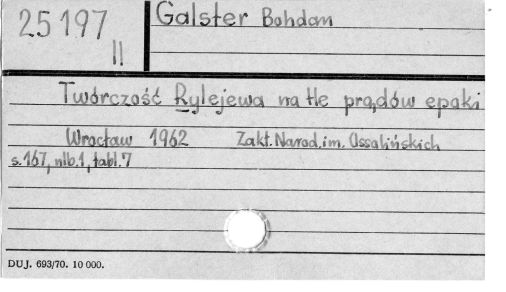 25197
II
Galster Bohdan
Twórczość Rylejewa na tle prądów epoki
Wrocław 1962 Zakł. Narod. im. Ossolińskich
s.167, nlb.1, tabl.7
DUJ. 693/70. 10 000.